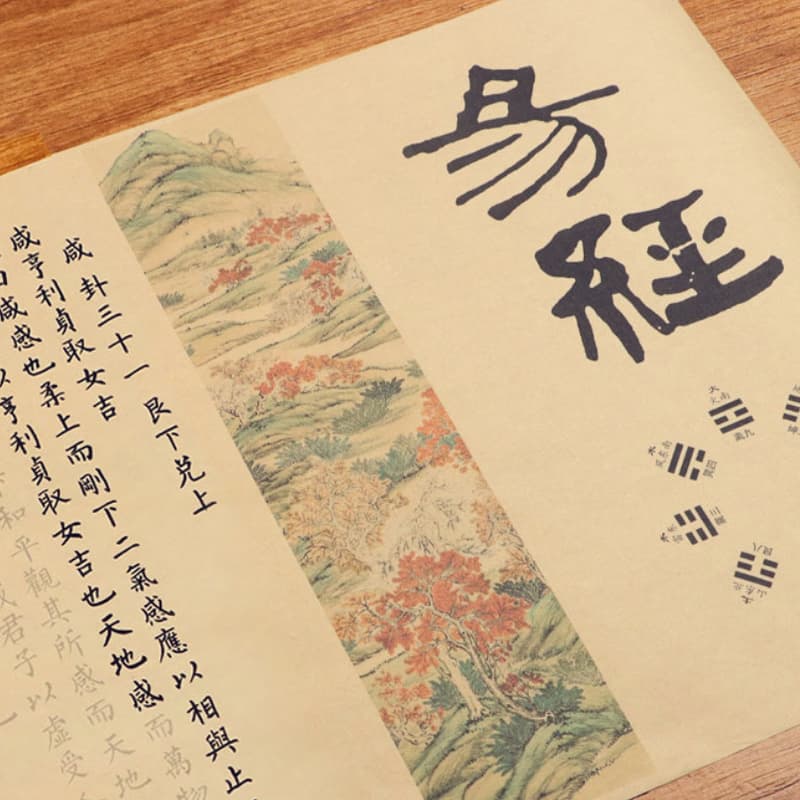 易經
南
離九
东南
巽四
震三
艮八
咸卦三十一 艮下兌上
咸亨利貞取女吉
咸感也柔上而剛下二氣感應以相與止
亨利貞取女吉也天地感而萬物
和平觀其所感而天地
君子以虛受